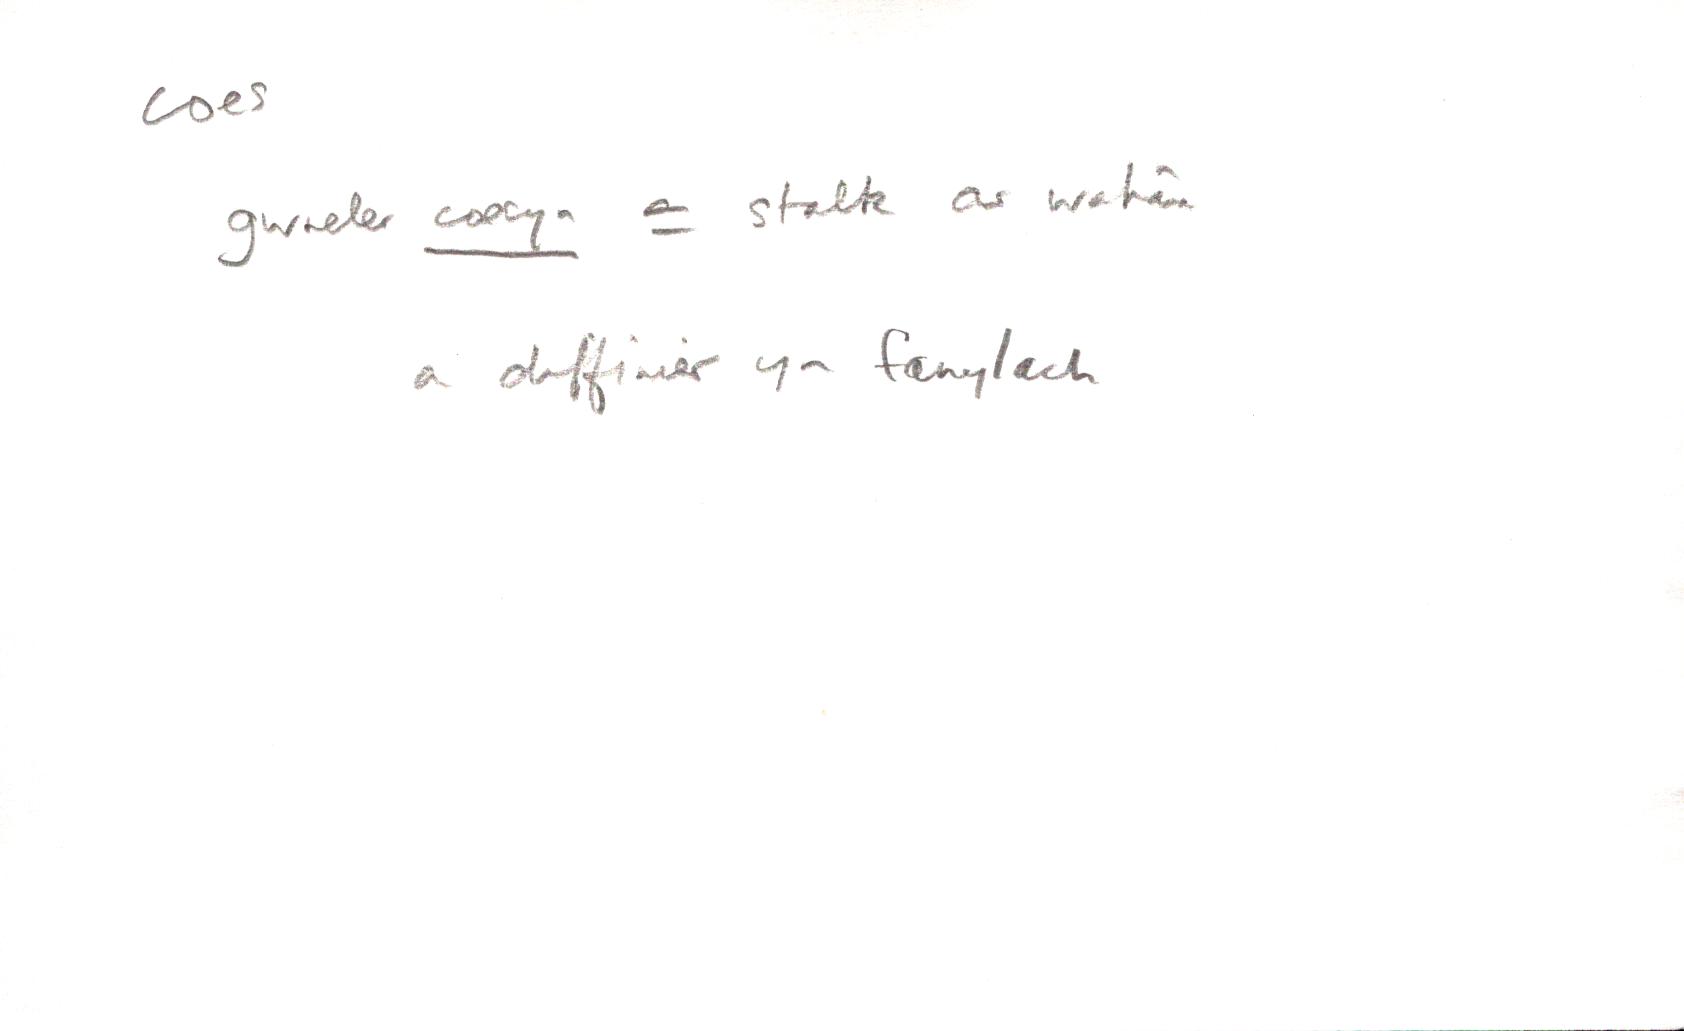 coes
gweler coesyn = stalk ar wahân
a diffinir yn fanylach